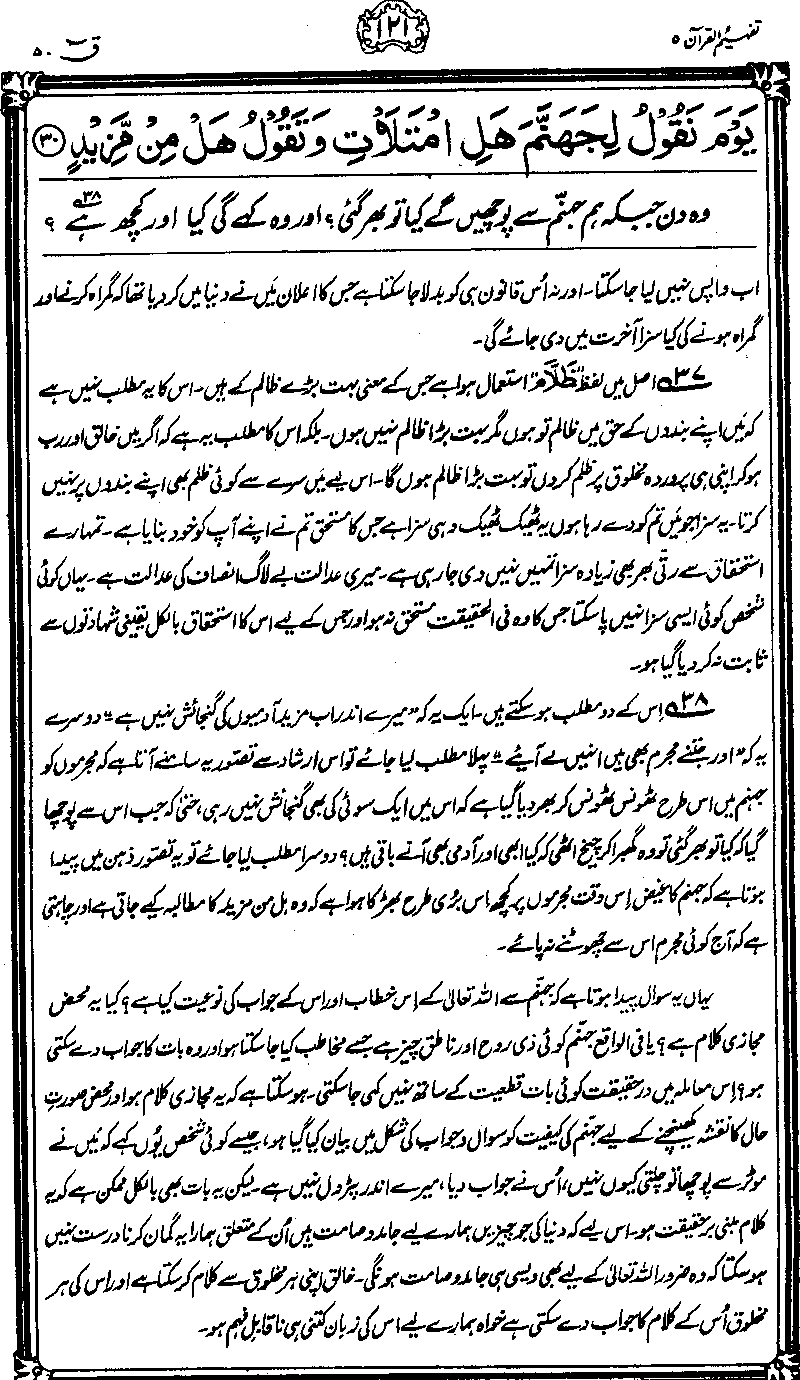 تفہیم القرآن ۵
۱۲۱
قٓ ۵۰
يَوْمَ نَقُوْلُ لِجَهَنَّمَ هَلِ امْتَلَاْتِ وَتَقُوْلُ هَلْ مِنْ مَّزِيْدٍ ۳۰
وہ دن جبکہ ہم جہنّم سے پوچھیں گے کیا تو بھر گئی؟ اور وہ کہے گی کیا اور کچھ ہے؟ ۳۸
اب واپس نہیں لیا جا سکتا۔ اور نہ اُس قانون ہی کو بدلا جا سکتا ہے جس کا اعلان میں نے دنیا میں کر دیا تھا کہ گمراہ کرنے اور
گمراہ ہونے کی کیا سزا آخرت میں دی جائے گی۔
۳۷ اصل میں لفظ ”ظَلَّام“ استعمال ہوا ہے جس کے معنی بہت بڑے ظالم کے ہیں۔ اس کا یہ مطلب نہیں ہے
کہ میں اپنے بندوں کے حق میں ظالم تو ہوں مگر بہت بڑا ظالم نہیں ہوں۔ بلکہ اس کا مطلب یہ ہے کہ اگر میں خالق اور رب
ہو کر اپنی ہی پروردہ مخلوق پر ظلم کروں تو بہت بڑا ظالم ہوں گا۔ اس لیے میں سرے سے کوئی ظلم بھی اپنے بندوں پر نہیں
کرتا۔ یہ سزا جو میں تم کو دے رہا ہوں یہ ٹھیک ٹھیک وہی سزا ہے جس کا مستحق تم نے اپنے آپ کو خود بنایا ہے۔ تمہارے
استحقاق سے رتّی بھر بھی زیادہ سزا تمہیں نہیں دی جا رہی ہے۔ میری عدالت بے لاگ انصاف کی عدالت ہے۔ یہاں کوئی
شخص کوئی ایسی سزا نہیں پا سکتا جس کا وہ فی الحقیقت مستحق نہ ہو اور جس کے لیے اس کا استحقاق بالکل یقینی شہادتوں سے
ثابت نہ کر دیا گیا ہو۔
۳۸ اِس کے دو مطلب ہو سکتے ہیں۔ ایک یہ کہ ”میرے اندر اب مزید آدمیوں کی گنجائش نہیں ہے“ دوسرے
یہ کہ ”اور جتنے مجرم بھی ہیں انہیں لے آیئے“ پہلا مطلب لیا جائے تو اس ارشاد سے تصور یہ سامنے آتا ہے کہ مجرموں کو
جہنم میں اس طرح ٹھونس ٹھونس کر بھر دیا گیا ہے کہ اس میں ایک سوئی کی بھی گنجائش نہیں رہی، حتیٰ کہ جب اس سے پوچھا
گیا کہ کیا تو بھر گئی تو وہ گھبرا کر چیخ اٹھی کہ کیا ابھی اور آدمی بھی آنے باقی ہیں؟ دوسرا مطلب لیا جائے تو یہ تصور ذہن میں پیدا
ہوتا ہے کہ جہنم کا غیض اِس وقت مجرموں پر کچھ اس بُری طرح بھڑکا ہوا ہے کہ وہ ہل من مزید کا مطالبہ کیے جاتی ہے اور چاہتی
ہے کہ آج کوئی مجرم اس سے چھوٹنے نہ پائے۔
یہاں یہ سوال پیدا ہوتا ہے کہ جہنّم سے اللہ تعالیٰ کے اِس خطاب اور اس کے جواب کی نوعیت کیا ہے؟ کیا یہ محض
مجازی کلام ہے؟ یا فی الواقع جہنّم کوئی ذی روح اور ناطق چیز ہے جسے مخاطب کیا جا سکتا ہو اور وہ بات کا جواب دے سکتی
ہو؟ اِس معاملہ میں درحقیقت کوئی بات قطعیت کے ساتھ نہیں کہی جا سکتی۔ ہو سکتا ہے کہ یہ مجازی کلام ہو اور محض صورتِ
حال کا نقشہ کھینچنے کے لیے جہنّم کی کیفیت کو سوال و جواب کی شکل میں بیان کیا گیا ہو، جیسے کوئی شخص یُوں کہے کہ میں نے
موٹر سے پوچھا تو چلتی کیوں نہیں، اُس نے جواب دیا، میرے اندر پٹرول نہیں ہے۔ لیکن یہ بات بھی بالکل ممکن ہے کہ یہ
کلام مبنی بر حقیقت ہو۔ اس لیے کہ دنیا کی جو چیزیں ہمارے لیے جامد و صامت ہیں اُن کے متعلق ہمارا یہ گمان کرنا درست نہیں
ہو سکتا کہ وہ ضرور اللہ تعالیٰ کے لیے بھی ویسی ہی جامد و صامت ہونگی۔ خالق اپنی ہر مخلوق سے کلام کر سکتا ہے اور اس کی ہر
مخلوق اُس کے کلام کا جواب دے سکتی ہے خواہ ہمارے لیے اس کی زبان کتنی ہی ناقابل فہم ہو۔